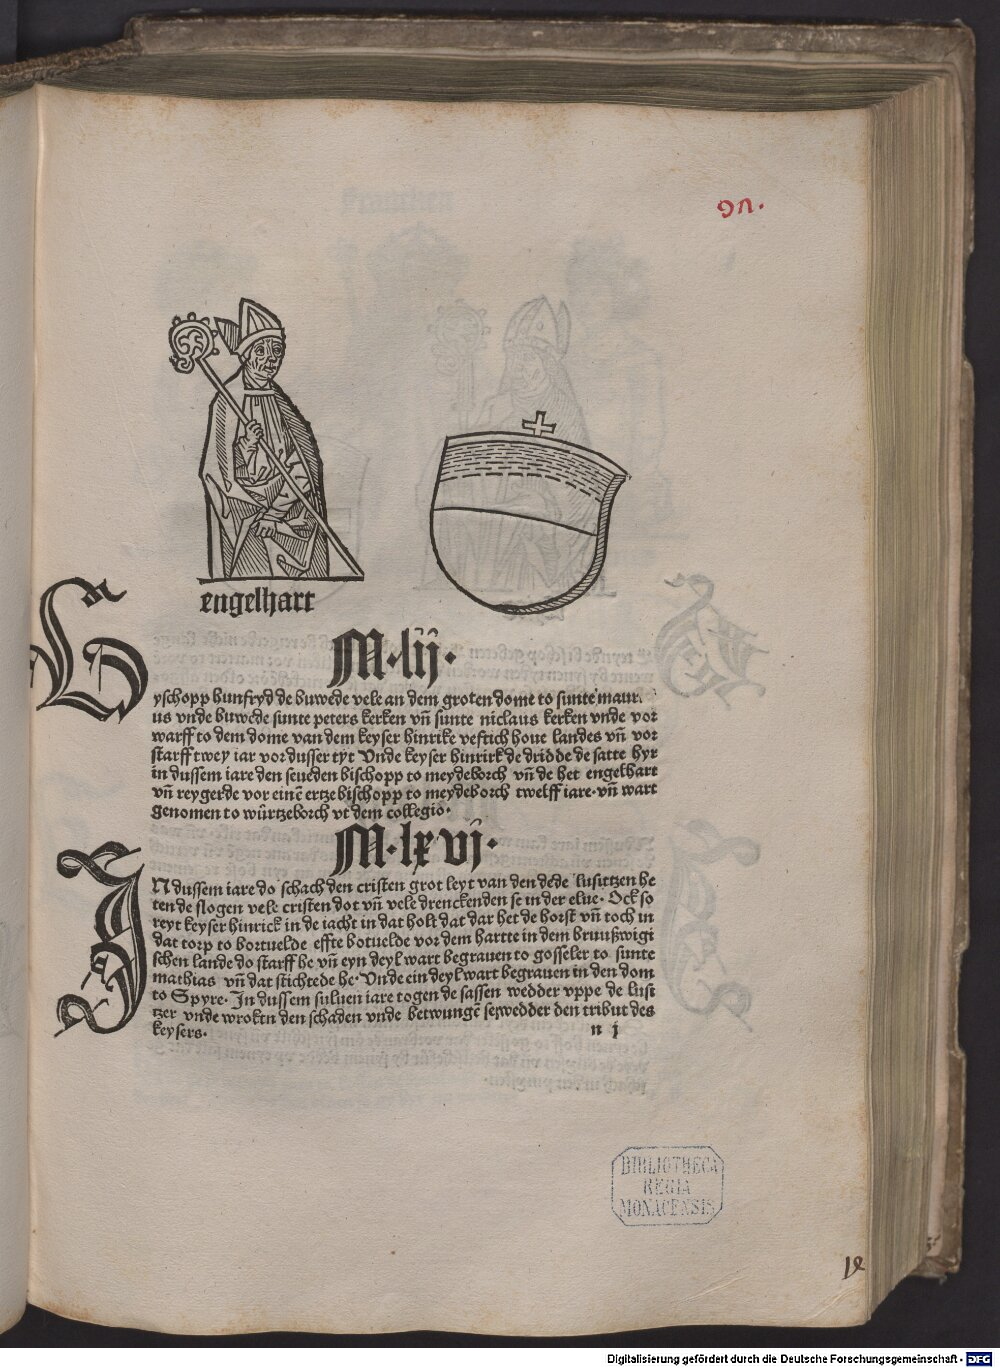 97.
engelhart
M·lij·
Byschopp hunfryd de buwede vele an dem groten dome to sunte maur
us vnde buwede sunte peters kerken vn̄ sunte niclaus kerken vnde vor
warff to dem dome van dem keyser hinrike veftich houe landes vn̄ vor
starff twey iar vor dusser tyt Vnde keyser hinrirk de dridde de satte hyr
in dussem iare den seueden bischopp to meydeborch vn̄ de het engelhart
vn̄ reygerde vor einē ertzebischopp to meydeborch twelff iare· vn̄ wart
genomen to wûrtzeborch vt dem collegio·
M·lxvj·
IN dussem iare do schach den cristen grot leyt van den dede lusittzen he
ten de slogen vele cristen dot vn̄ vele drenckenden se in der elue· Ock so
reyt keyser hinrick in de iacht in dat holt dat dar het de borst vn̄ toch in
dat torp to bortuelde effte botuelde vor dem hartte in dem bruußwigi
schen lande do starff he vn̄ eyn deyl wart begrauen to gosseler to sunte
mathias vn̄ dat stichtede he· Vnde ein deyl wart begrauen in den dom
to Spyre· In dussem suluen iare togen de sassen wedder vppe de lusi
tzer vnde wroktn den schaden vnde betwungē se wedder den tribut des
keysers·
n j
BIBLIOTHECA
REGIA
MONACENSIS
Digitalisierung gefördert durch die Deutsche Forschungsgemeinschaft - DFG